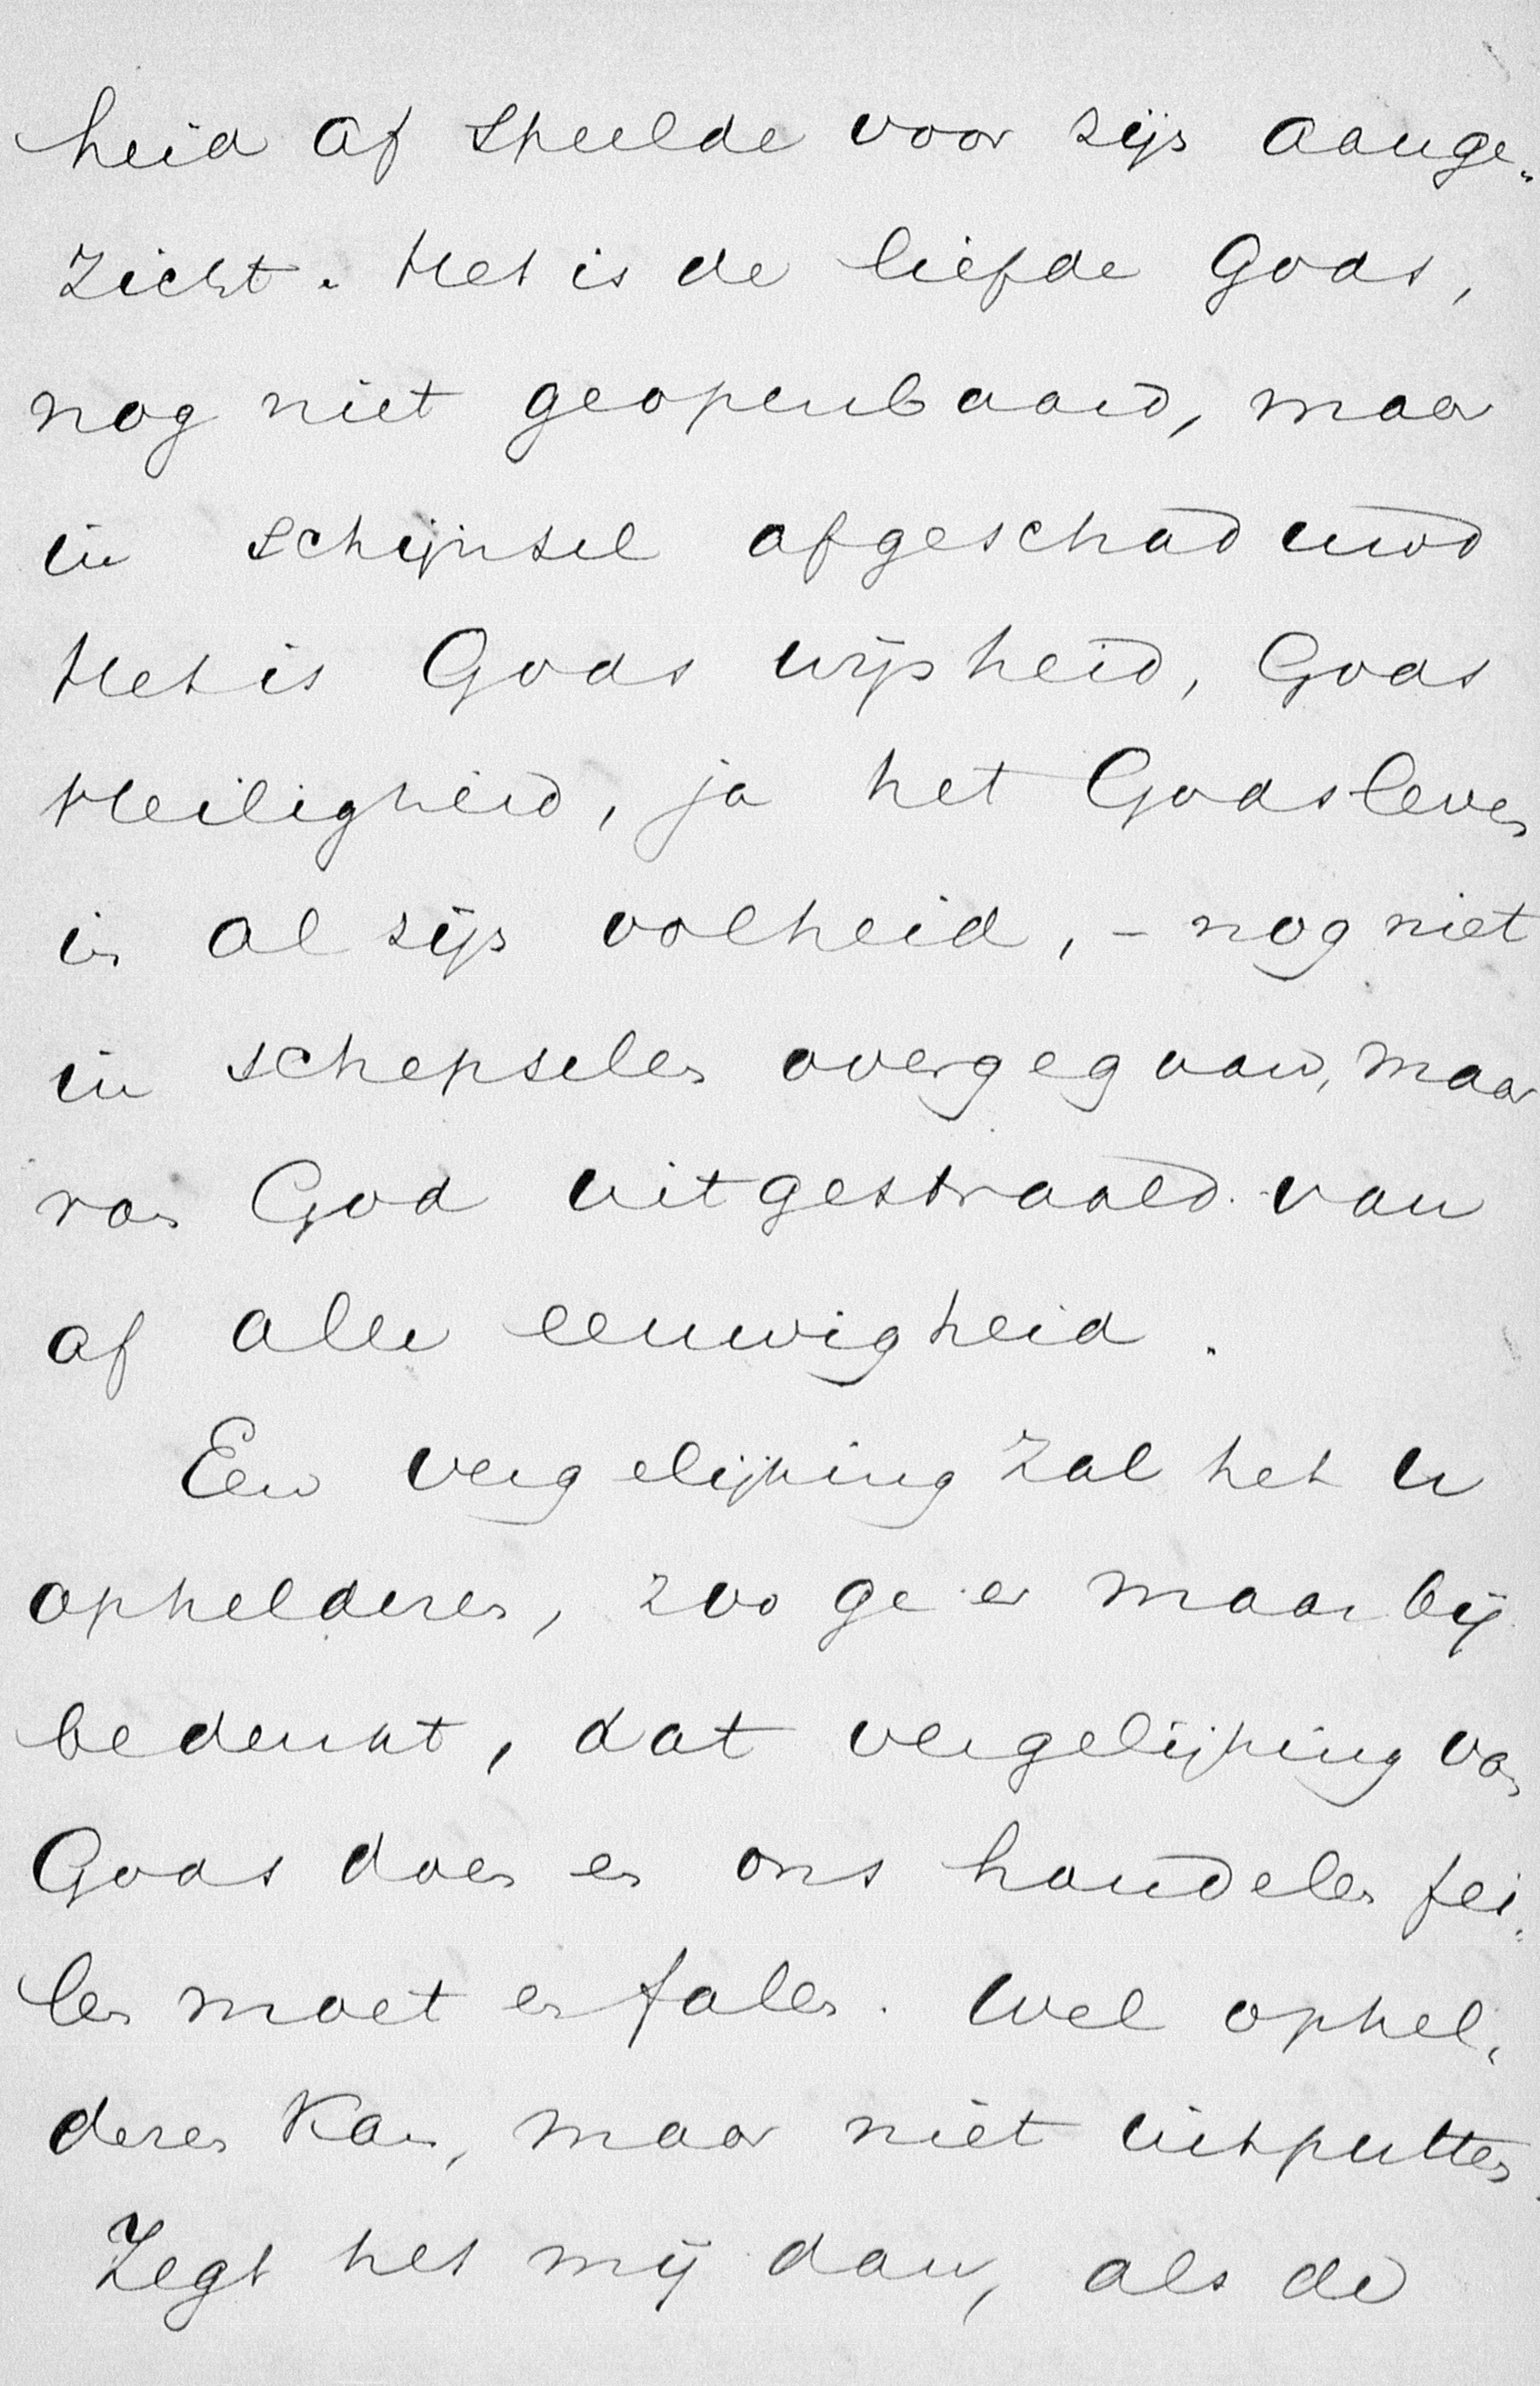 heid af speelde voor zijn aange„
zicht. Het is de liefde Gods,
nog niet geopenbaard, maar
in schijnsel afgeschaduwd
Het is Gods wijsheid, Gods
Heiligheid, ja het Godsleven
in al zijn volheid, – nog niet
in schepselen overgegaan, maar
van God uitgestraald van
af alle eeuwigheid.
Een vergelijking zal het u
ophelderen, zoo ge er maar bij
bedenkt, dat vergelijking van
Gods doen en ons handelen fei„
len moet en falen. Wel ophel„
deren kan, maar niet uitputten
Zegt het mij dan, als de